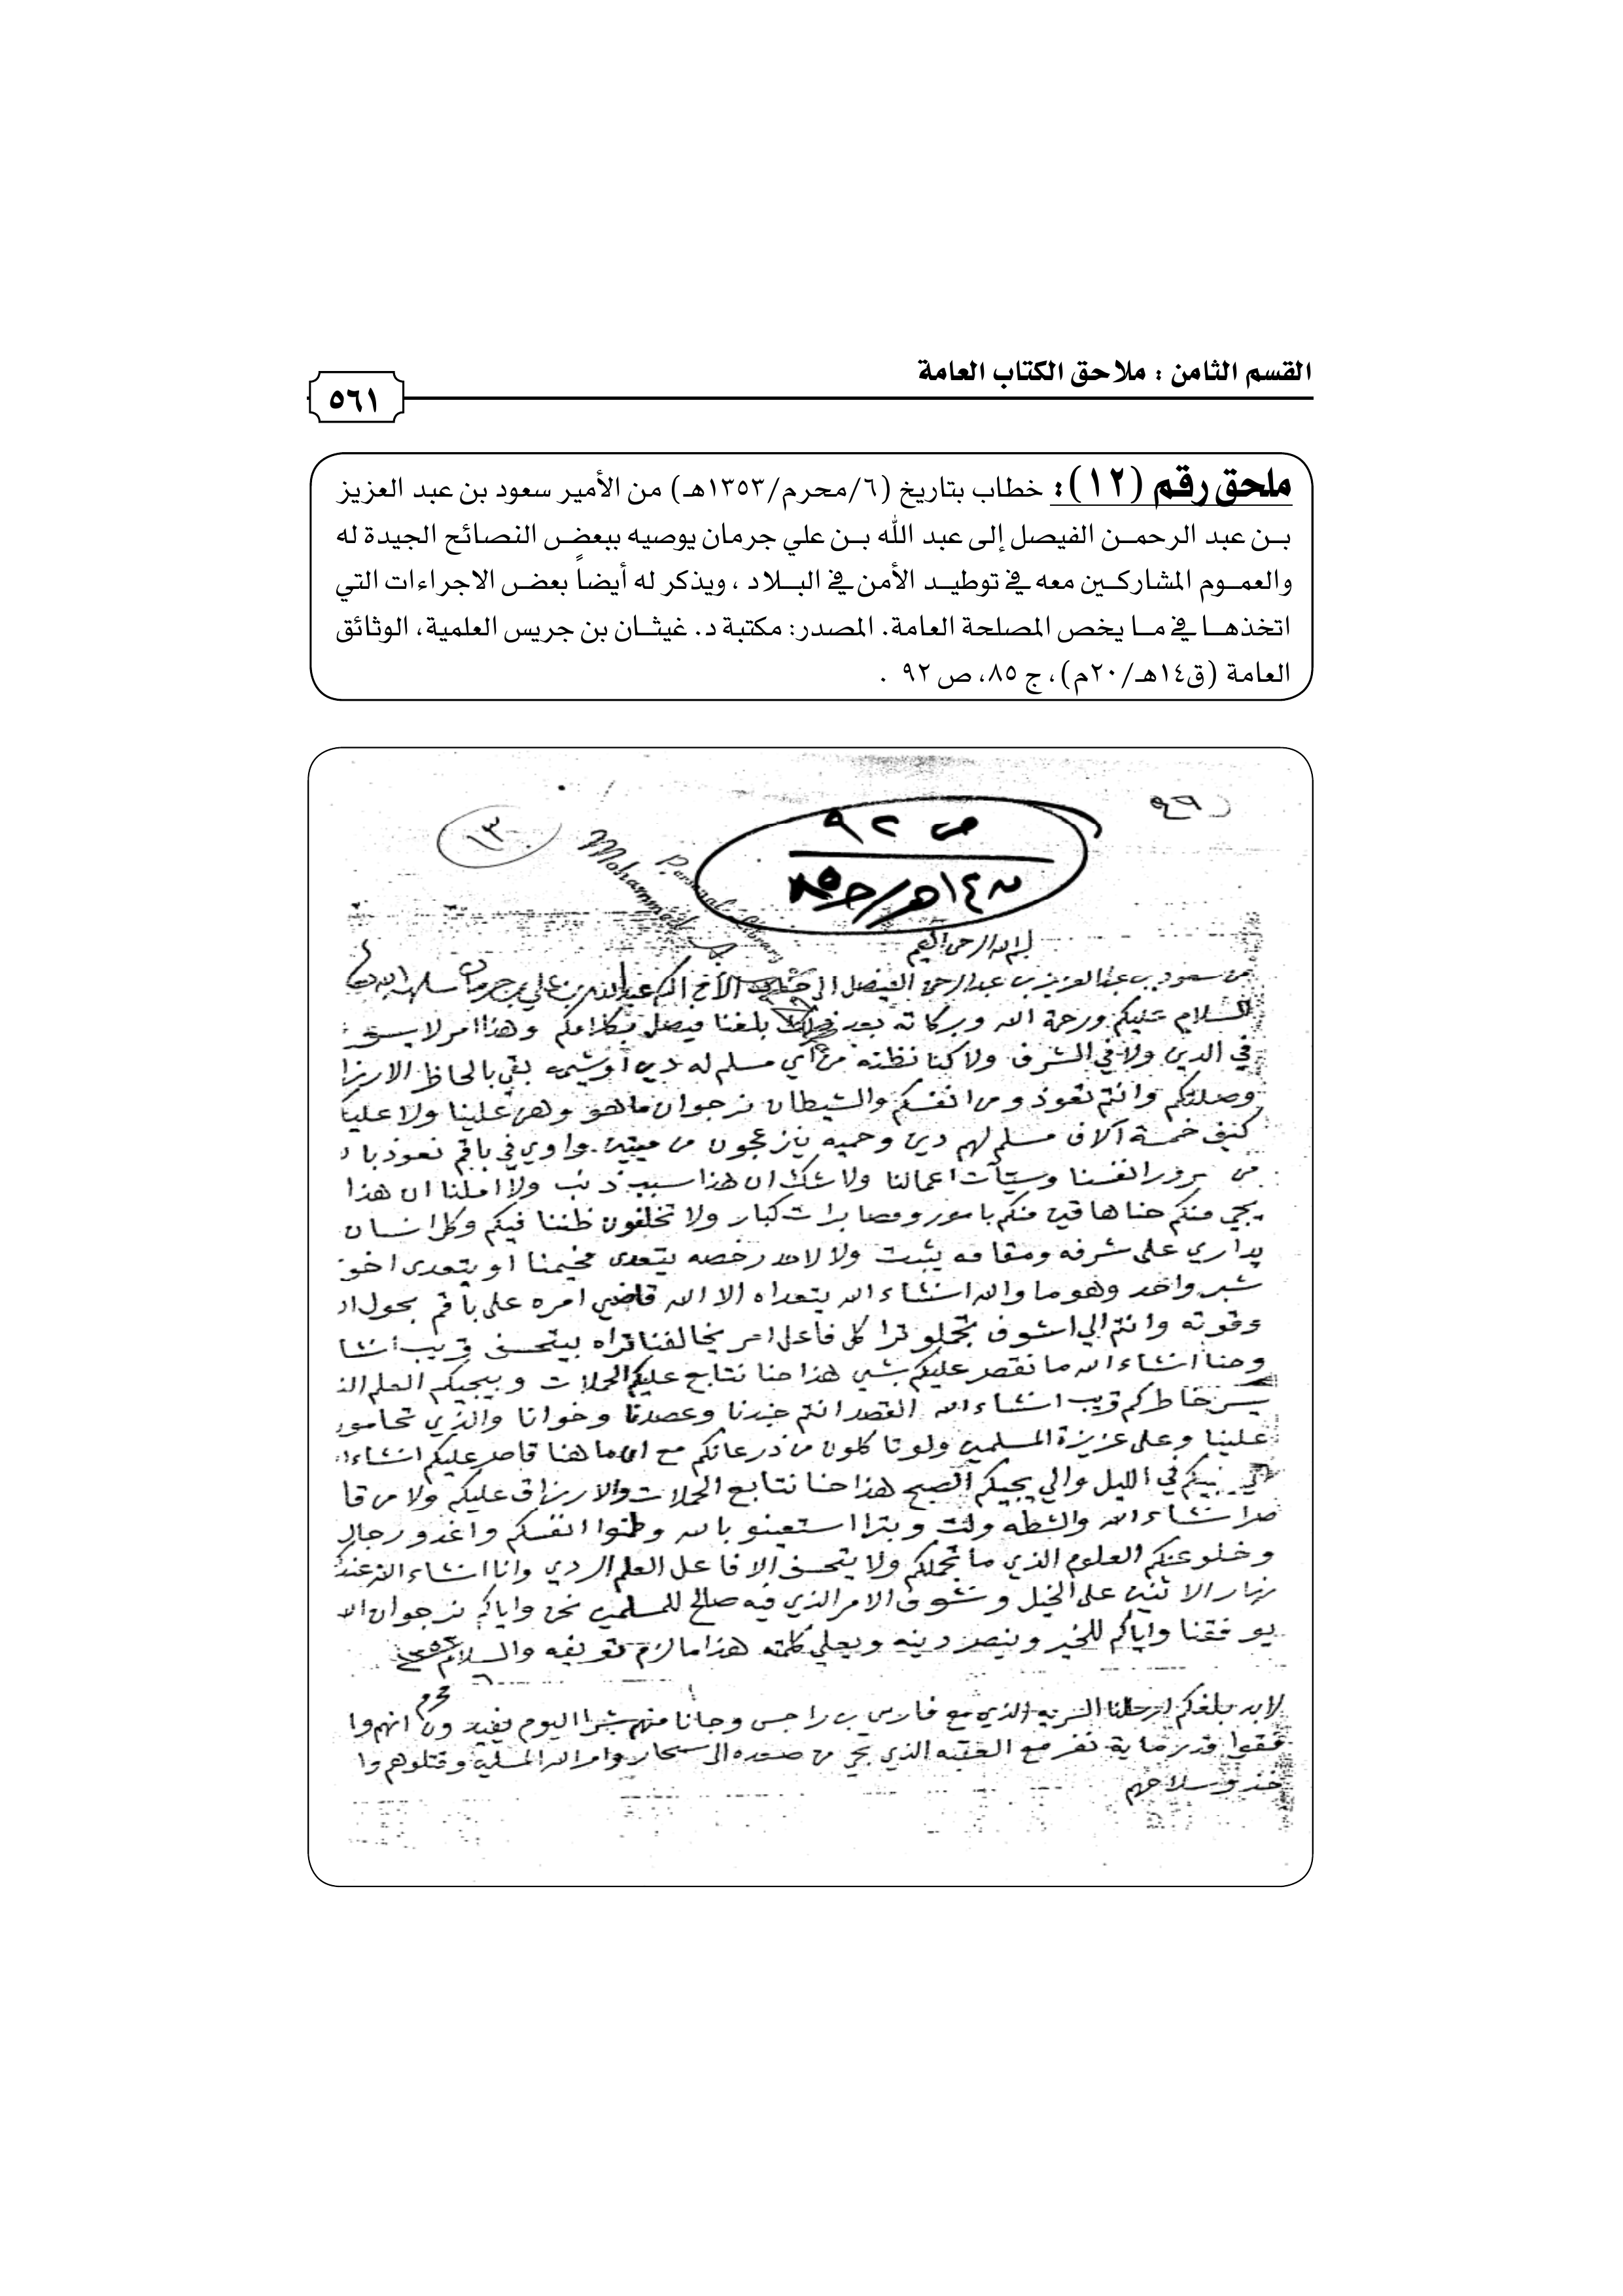 القسم الثامن : ملاحق الكتاب العامة
٥٦١
ملحق رقم (١٢): خطاب بتاريخ (٦/محرم/١٣٥٣هـ) من الأمير سعود بن عبد العزيز
بن عبد الرحمن الفيصل إلى عبد الله بن علي جرمان يوصيه ببعض النصائح الجيدة له
والعموم المشاركين معه في توطيد الأمن في البلاد ، ويذكر له أيضاً بعض الاجراءات التي
اتخذها في ما يخص المصلحة العامة. المصدر: مكتبة د. غيثان بن جريس العلمية، الوثائق
العامة (ق١٤هـ/٢٠م)، ج ٨٥، ص ٩٢ .
ص ٩٢
ق ١٤هـ/ج٨٥
١٣
Mohammed
Personal Library
بسم الله الرحمن الرحيم
من سعود بن عبدالعزيز بن عبدالرحمن الفيصل الى الأخ المكرم عبدالله بن علي بن جرمان سلمه الله
السلام عليكم ورحمة الله وبركاته بعد بلغنا فيصل وهذا امر لا
في الدين ولا في الشرف ولا كنا نظنه من أي مسلم له دين أو شيمه بقي بالحاظ الارزا
وصلتكم وانتم نعوذ ومن انفسكم والشيطان نرجوان ماهو وهن علينا ولا علي
كيف خمسة آلاف مسلم لهم دين وحميه ينزعجون من واوي في باقم نعوذ با
من انفسنا وسيئات اعمالنا ولا شك ان هذا سببه ذنب ولا املنا ان هذا
يجي منكم حنا هاقين منكم بامور ومصابرات كبار ولا تخلفون ظننا فيكم وكل انسان
يداري على شرفه ومقامه يثبت ولا لاحد رخصه يتعدى مخيمنا او يتعدى
شبر واحد وهو ما والله انشاء الله يتعداه الا الله قاضي امره على باقم بحول
وقوته وانتم الي اشوف تجملو ترا كل فاعل امر يخالفنا تراه بيتحسف قريب انشا
وحنا انشاء الله ما نقصر عليكم بشي هذا حنا نتابع عليكم الحملات وبيجيكم العلم
يسر خاطركم قريب انشاء الله القصد انتم جندنا وعضدنا وخوانا والذي
علينا وعلى عزيزة المسلمين ولو تاكلون من ذرعانكم مع ان ما هنا قاصر عليكم انشاء
في الليل والي يجيكم الصبح هذا حنا نتابع الحملات والارزاق عليكم ولا من قا
صر انشاء الله ولت وبترا استعينو بالله وطنوا انفسكم واغدو رجال
وخلو عنكم العلوم الذي ما تجملكم ولا يتحسف الا فاعل العلم الردي وانا انشاء الله عندكم
نهار الاثنين على الخيل ونشوف الامر الذي فيه صالح للمسلمين نحن واياكم نرجوان الله
يوفقنا واياكم للخير وينصر دينه ويعلي كلمته هذا ما لزم تعريفه والسلام
محرم
لابد بلغكم ارسلنا السريه الذي مع فارس بن راجس وجانا منهم اليوم يفيدون انهم وا
فقوا قدر ماية نفر مع العقبه الذي تجي من صعده الى وامر الله المسلمين وقتلوهم وا
خذو سلاحهم